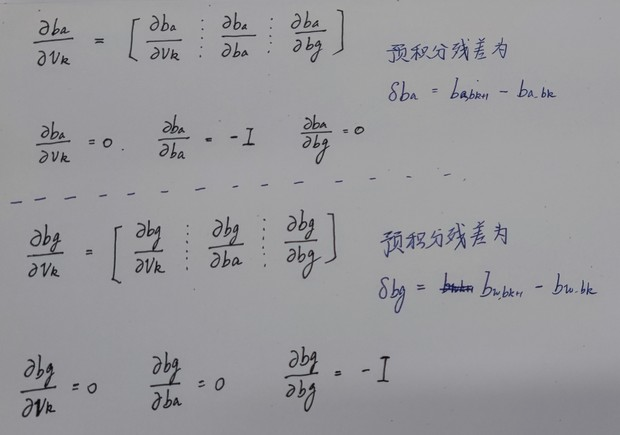 ∂ba/∂Vk = [ ∂ba/∂Vk ⋮ ∂ba/∂ba ⋮ ∂ba/∂bg ]
预积分残差为
δba = ba,bk+1 - ba.bk
∂ba/∂Vk = 0. ∂ba/∂ba = -I ∂ba/∂bg = 0
∂bg/∂Vk = [ ∂bg/∂Vk ⋮ ∂bg/∂ba ⋮ ∂bg/∂bg ]
预积分残差为
δbg = bw,bk+1 - bw.bk
∂bg/∂Vk = 0 ∂bg/∂ba = 0 ∂bg/∂bg = -I